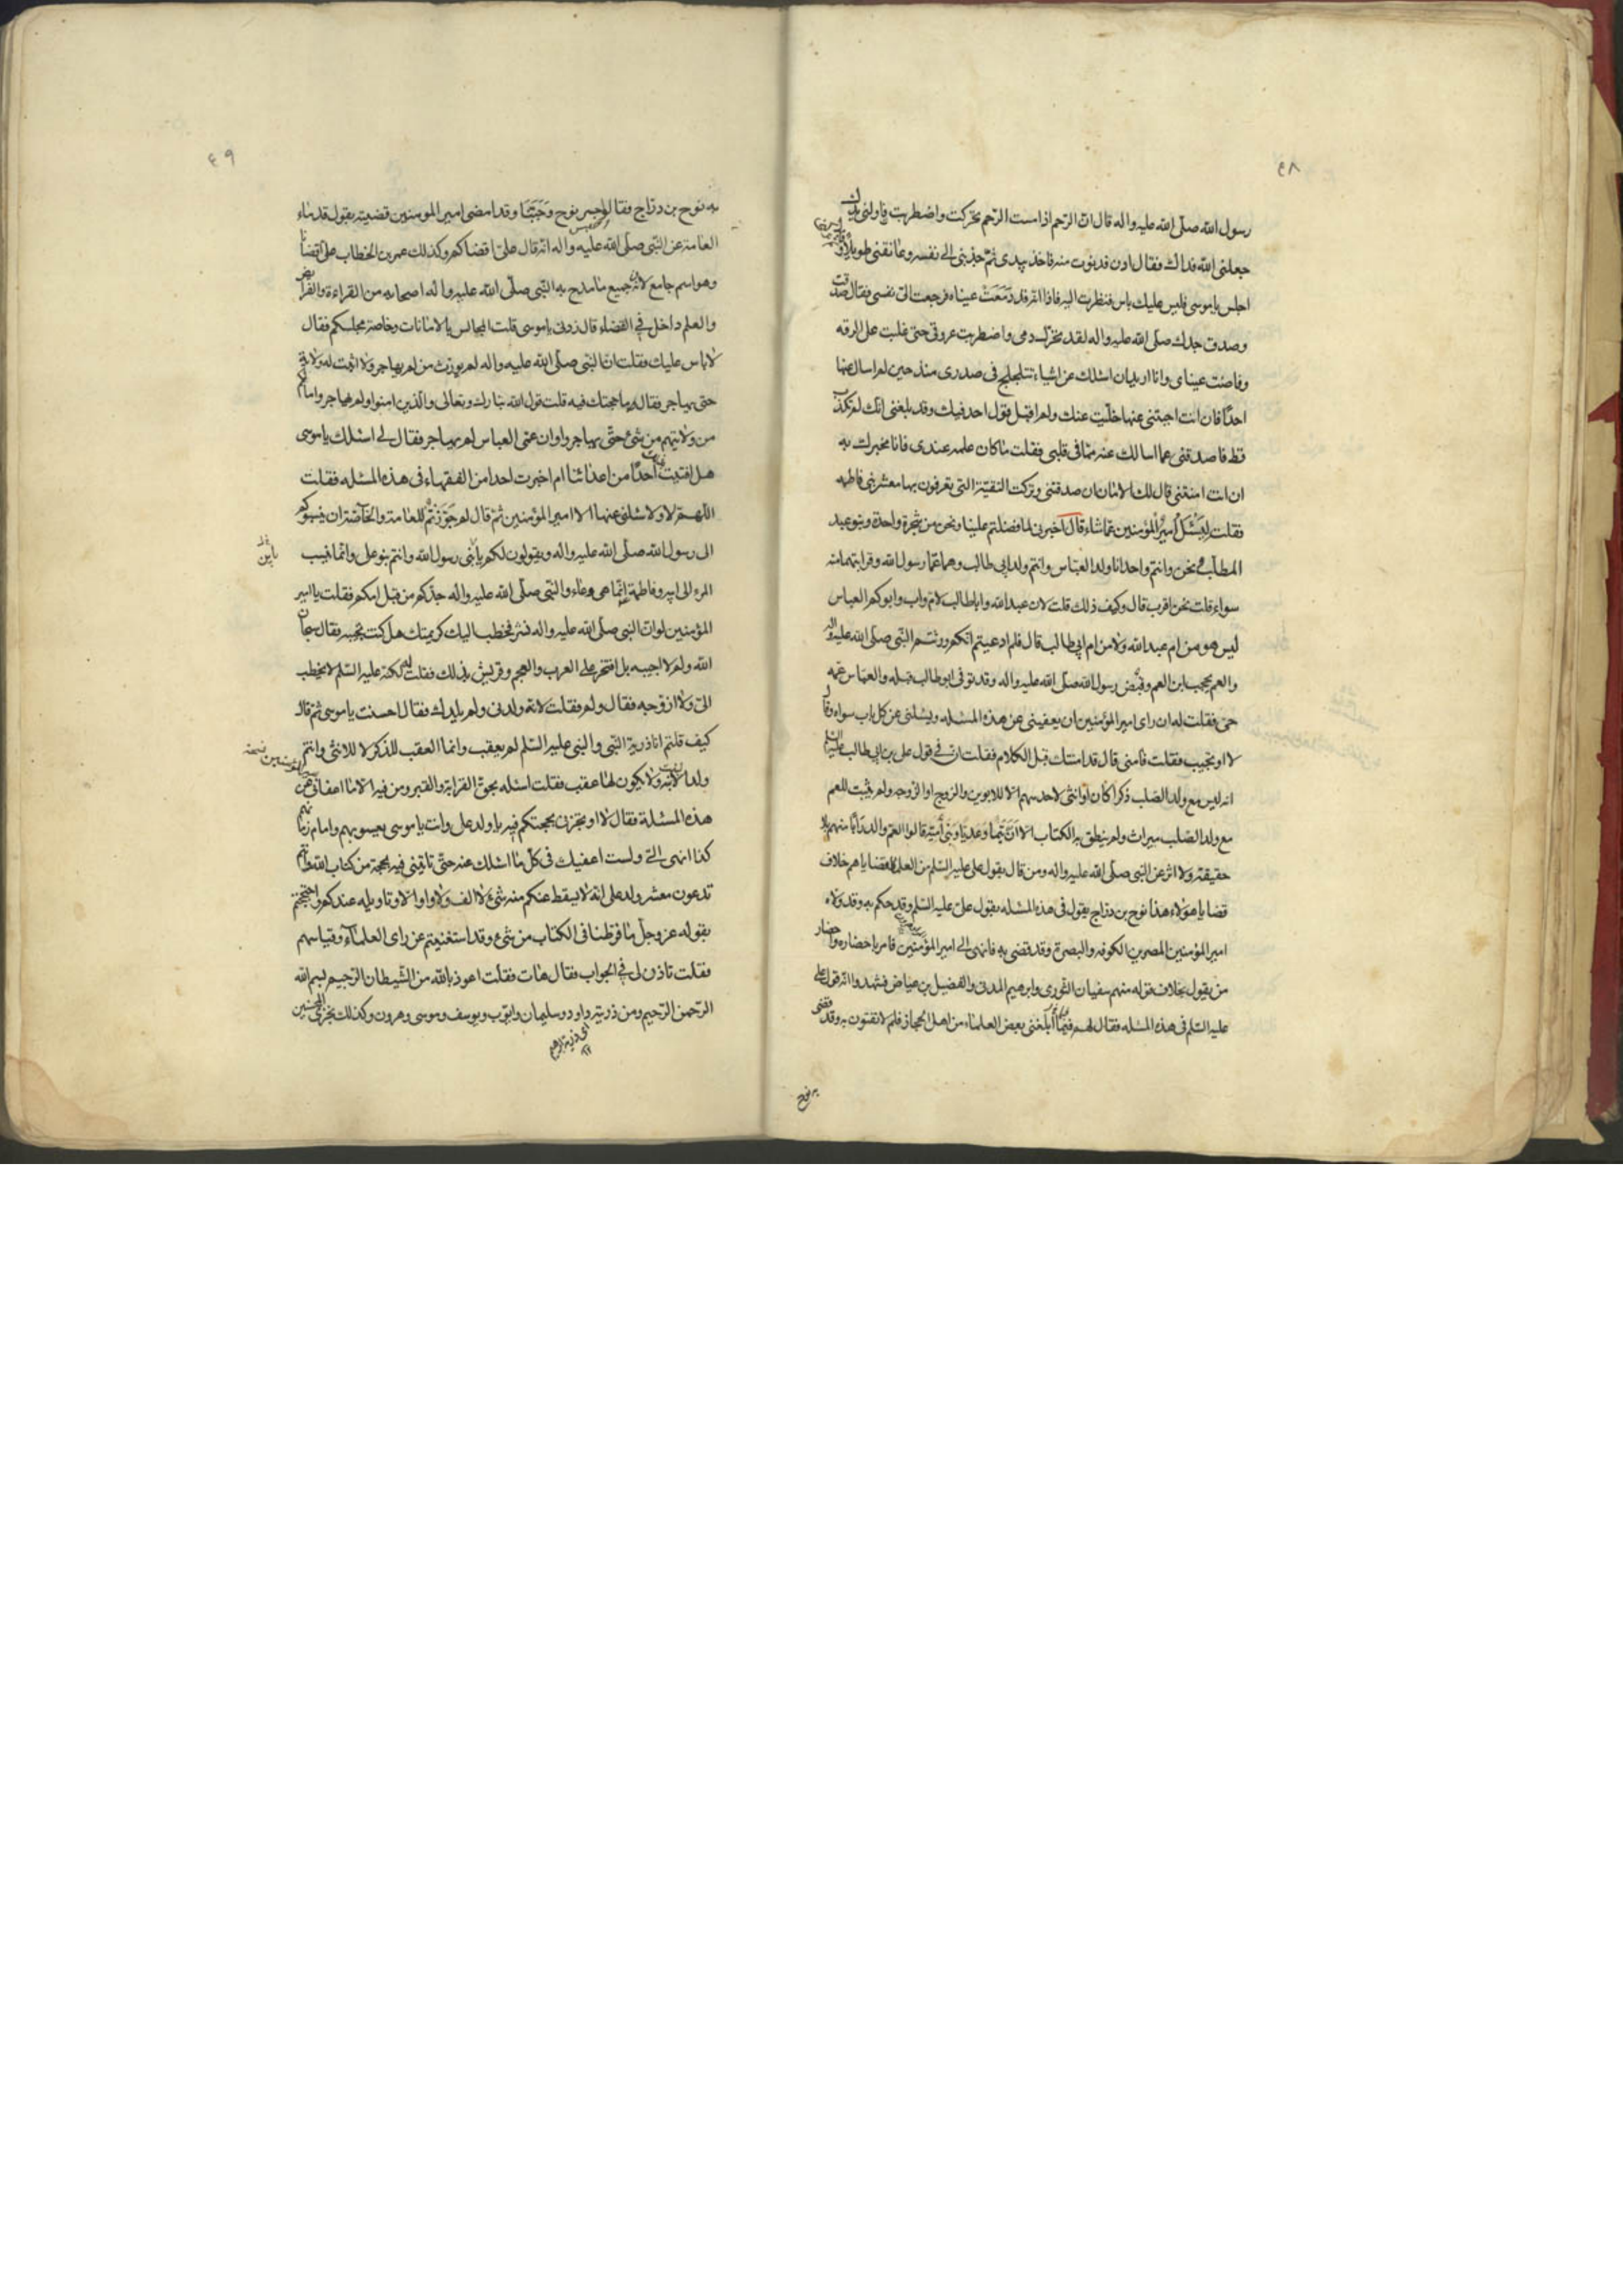 ٤٨
رسول الله صلّى الله عليه واله قال انّ الرّحم اذا مست الرّحم تحرّكت واضطربت فناولنى يدك
جعلنى الله فداك فقال ادن فدنوت منه فاخذ بيدى ثمّ جذبنى الى نفسه وعانقنى طويلا
اجلس يا موسى فليس عليك باس فنظرت اليه فاذا انه قد دَمَعَتْ عيناه فرجعت الىّ نفسى فقال صدقت
وصدق جدك صلّى الله عليه واله لقد تحرّك دمى واضطربت عروقى حتى غلبت علىّ الرقه
وفاضت عيناى وانا اريد ان اسئلك عن اشياء تتلجلج فى صدرى منذ حين لم اسال عنها
احدًا فان انت اجبتنى عنها خلّيت عنك ولم اقبل قول احد فيك وقد بلغنى انّك لم تكذب
قط فاصدقنى عما اسالك عنه ممّا فى قلبى فقلت ما كان علمه عندى فانا مخبرك به
ان انت امنتنى قال لك الامان ان صدقتنى وتركت التقيّة التى تعرفون بها معشر بنى فاطمه
فقلت لِيَسْئَلْ اَميرُ المؤمنين عمّا شاء قال اخبرنى لما فضلتم علينا ونحن من شجرة واحدة وبنو عبد
المطلب ونحن وانتم واحد انا ولد العبّاس وانتم ولد ابى طالب وهما عمّا رسول الله وقرابتهما منه
سواء قلت نحن اقرب قال وكيف ذلك قلت لان عبد الله وابا طالب لام واب وابوكم العباس
ليس هو من ام عبد الله ولا من ام ابى طالب قال فلم ادعيتم انّكم ورثتم النّبى صلّى الله عليه واله
والعم يحجب ابن العم وقُبض رسول الله صلّى الله عليه واله وقد توفى ابو طالب قبله والعبّاس عمّه
حىّ فقلت له ان راى امير المؤمنين ان يعفينى عن هذه المسئله ويسئلنى عن كل باب سواه فقال
لا او تجيب فقلت فامنى قال قد امنتك قبل الكلام فقلت ان فى قول على بن ابى طالب عليه السلم
انه ليس مع ولد الصّلب ذكرا كان او انثى لاحد سهم الّا للابوين والزوج او الزوجه ولم يثبت للعم
مع ولد الصّلب ميراث ولم ينطق به الكتاب الّا انّ تَيْمًا وعَديًّا وبَنى اُميّة قالوا العمّ والد رَأيًا منهم بلا
حقيقة ولا اثر عن النّبى صلّى الله عليه واله ومن قال بقول على عليه السّلم من العلماء قضاياهم خلاف
قضايا هؤلاء هذا نوح بن درّاج يقول فى هذه المسئله بقول علىّ عليه السّلم وقد حكم به وقد ولّاه
امير المؤمنين المصرين الكوفه والبصرة وقد قضى به فانهى الى امير المؤمنين فامر باحضاره واحضار
من يقول بخلاف قوله منهم سفيان الثّورى وابرهيم المدنى والفضيل بن عياض فشهدوا انّه قول على
عليه السّلم فى هذه المسئله فقال لهم فيما ابلغنى بعض العلماء من اهل الحجاز فلم لا تفتون به وقد قضى
به نوح
٤٩
به نوح بن درّاج فقالوا جسر نوح وَجَبُنّا وقد امضى امير المومنين قضيته بقول قدماء
العامّة عن النّبى صلّى الله عليه واله انّه قال علىّ اقضاكم وكذلك عمر بن الخطاب علىّ اقضانا
وهو اسم جامع لانّ جميع ما مدح به النّبى صلّى الله عليه واله اصحابه من القراءة والفرائض
والعلم داخل فى القضاء قال زدنى يا موسى قلت المجالس بالامانات وخاصّة مجلسكم فقال
لا باس عليك فقلت انّ النّبى صلّى الله عليه واله لم يورّث من لم يهاجر ولا اثبت له ولاية
حتى يهاجر فقال ما حجتك فيه قلت قول الله تبارك وتعالى والّذين امنوا ولم يهاجروا ما لكم
من ولايتهم من شئ حتّى يهاجروا وان عمى العباس لم يهاجر فقال لى اسئلك يا موسى
هل افتيت احدًا من اعدائنا ام اخبرت احدا من الفقهاء فى هذه المسئله فقلت
اللّهمّ لا ولا سئلنى عنها الا امير المؤمنين ثمّ قال لم جَوَّزْتُمْ للعامة والخاصّة ان ينسبوكم
الى رسول الله صلّى الله عليه واله ويقولون لكم يا بنى رسول الله وانتم بنو على وانّما ينسب
المرء الى ابيه وفاطمة انّما هى وعاء والنّبى صلّى الله عليه واله جدّكم من قبل امكم فقلت يا امير
المؤمنين لو انّ النبى صلّى الله عليه واله نشر فخطب اليك كريمتك هل كنت تجيبه فقال سبحان
الله ولم لا اجيبه بل افتخر على العرب والعجم وقريش بذلك فقلت له لكنّه عليه السّلم لا يخطب
الىّ ولا ازوّجه فقال ولم فقلت لانّه ولدنى ولم يلدك فقال احسنت يا موسى ثمّ قال
كيف قلتم انّا ذريّة النّبى والنبى عليه السّلم لم يعقب وانما العقب للذكر لا للانثى وانتم
ولد الابنة ولا يكون لها عقب فقلت اسئله بحقّ القرابة والقبر ومن فيه الّا ما اعفانى عن
هذه المسئلة فقال لا او تخبرنى بحجتكم فيه يا ولد على وانت يا موسى يعسوبهم وامام زمانهم
كذا انهى الىّ ولست اعفيك فى كلّ ما اسئلك عنه حتّى تاتينى فيه بحجّة من كتاب الله وانتم
تدعون معشر ولد على انّه لا يسقط عنكم منه شئ لا الف ولا واو الّا وتاويله عندكم واحتججتم
بقوله عز وجلّ ما فرّطنا فى الكتاب من شئ وقد استغنيتم عن راى العلماء وقياسهم
فقلت تاذن لى فى الجواب فقال هات فقلت اعوذ بالله من الشّيطان الرّجيم بسم الله
الرّحمن الرّحيم ومن ذريّته داود وسليمان وايّوب ويوسف وموسى وهرون وكذلك نجزى المحسنين